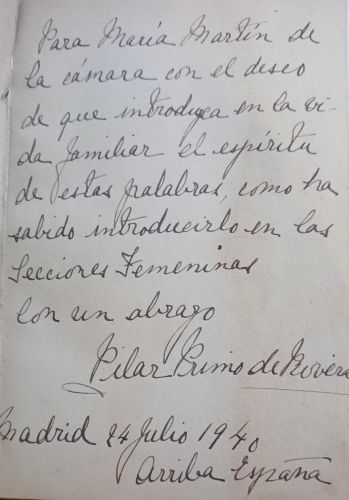 Para María Martín de
la cámara con el deseo
de que introduzca en la vi-
da familiar el espíritu
de estas palabras, como ha
sabido introducirlo en las
Secciones Femeninas
Con un abrazo
Pilar Primo de Rivera
Madrid 24 Julio 1940
Arriba España